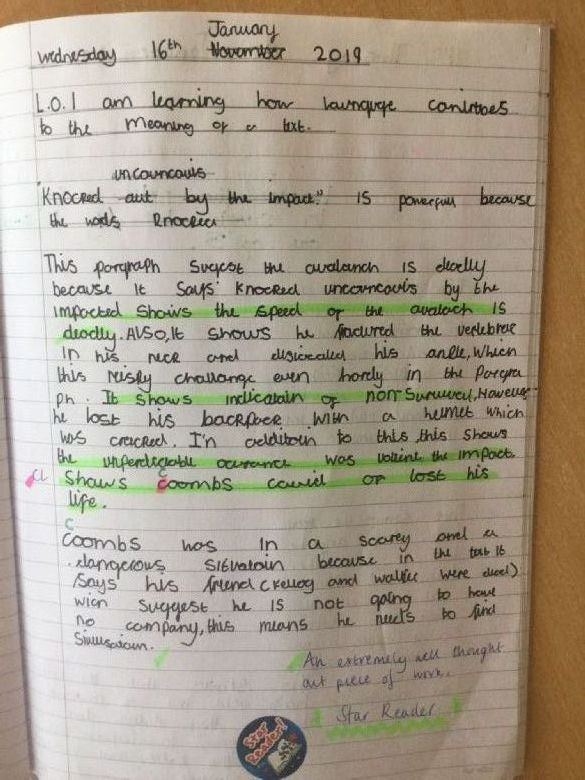 January
wednesday 16th November 2019
L.O. I am learning how launguge conirtoes
to the meaning of a text.
uncouncouis
"Knocked out by the impact." is powerfull because
the words Knocked
This pargraph sugest the avalanch is deadly
because it says' knocked uncouncouis by the
impacted shows the speed of the avalach is
deadly. Also, it shows he fractured the vertebrae
in his neck and dislocated his ankle, which
this risky challange even hardly in the Paragra
ph. It shows indicatain of non survival, However
he lost his backpack with a helmet which
was cracked. In additoin to this, this shows
the was the impact
shows Coombs could of lost his
life.
Coombs was in a scarey and a
dangerous situatoin because in the text it
says his friend (kellog and walker were dead)
wich suggest he is not going to have
no company, this means he needs to find
An extremely well thought
out piece of work.
Star Reader
Star
Reader!